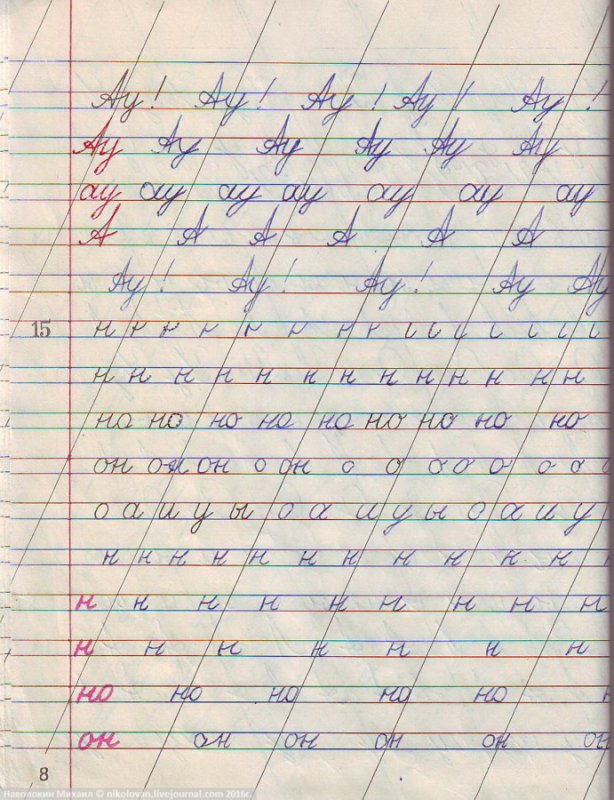 Ау! Ау! Ау! Ау! Ау!
Ау Ау Ау Ау Ау Ау
ау ау ау ау ау ау ау
А А А А А А
Ау! Ау! Ау! Ау Ау
15 н
н н н н н н н н н н н н
но но но но но но но но но
он он он о он о о о о о о о о
о а и у ы о а и у ы о а и у
н н н н н н н н н н н н
н н н н н н н н н
н н н н н н н
но но но но но
он он он он он он
8
Наволокин Михаил © nikolovan.livejournal.com 2016г.